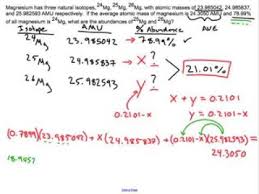 Magnesium has three natural isotopes, ²⁴Mg, ²⁵Mg, ²⁶Mg, with atomic masses of 23.985042, 24.985837,
and 25.982593 AMU respectively. If the average atomic mass of magnesium is 24.3050 AMU, and 78.99%
of all magnesium is ²⁴Mg, what are the abundances of ²⁵Mg and ²⁶Mg?
Isotope AMU % Abundance AVE
²⁴Mg 23.985042 78.99%
²⁵Mg 24.985837 → X ?
²⁶Mg 25.982593 → y ?
21.01%
x + y = 0.2101
-x -x
y = 0.2101-x
(0.7899)(23.985042) + x(24.985837) + (0.2101-x)(25.982593) =
24.3050